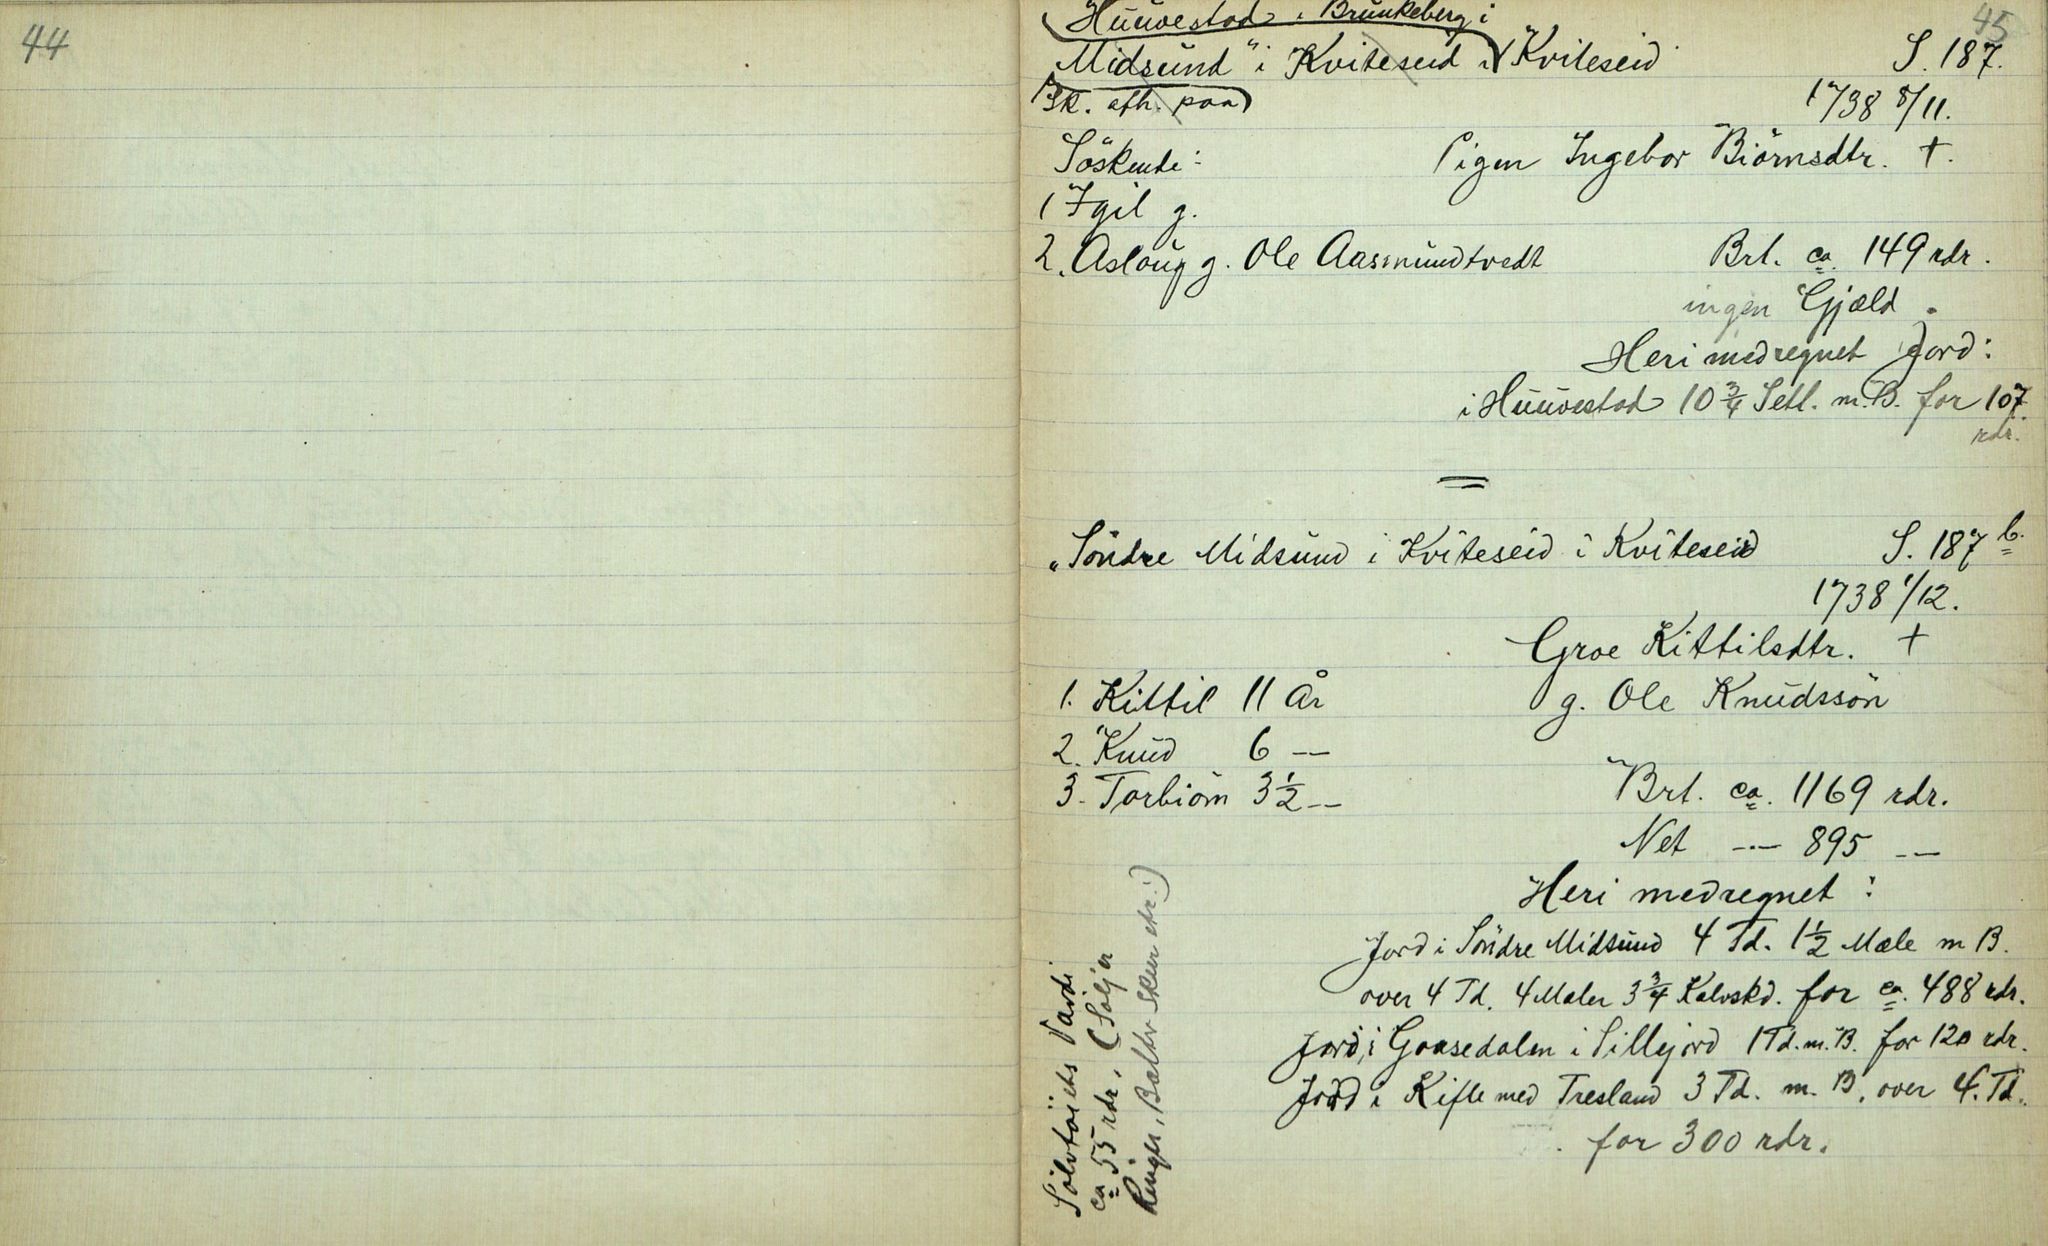 44
45
Huuvestad i Brunkeberg i
Midsund" i Kviteseid i Kviteseid S. 187.
Sk. afh. paa 1738 8/11.
Söskende: Pigen Ingebor Biörnsdtr. +.
1 Igil g.
2. Aslaug g. Ole Aasmundtvedt Brt. ca. 149 rdr.
ingen Gjæld.
Heri medregnet Jord:
i Huuvestad 10 3/4 Setl. m. B. for 107
rdr.
"Söndre Midsund i Kviteseid i Kviteseid S. 187 b.
1738 1/12.
Groe Kittilsdtr. +
1. Kittil 11 År g. Ole Knudssön
2. Knud 6 —
3. Torbiörn 3 1/2 — Brt. ca. 1169 rdr.
Net — 895 —
Heri medregnet:
Jord i Söndre Midsund 4 Td. 1 1/2 Mæle m B.
over 4 Td. 4 Mæler 3 3/4 Kalvskd. for ca. 488 rdr.
Jord i Gaasedalen i Sillejord 1 Td. m. B. for 120 rdr.
Jord i Kifle med Tresland 3 Td. m. B. over 4. Td.
for 300 rdr.
Sölvtöiets Værdi
ca 55 rdr. (Söljer
Ringer, Bælter Skeer etc.)